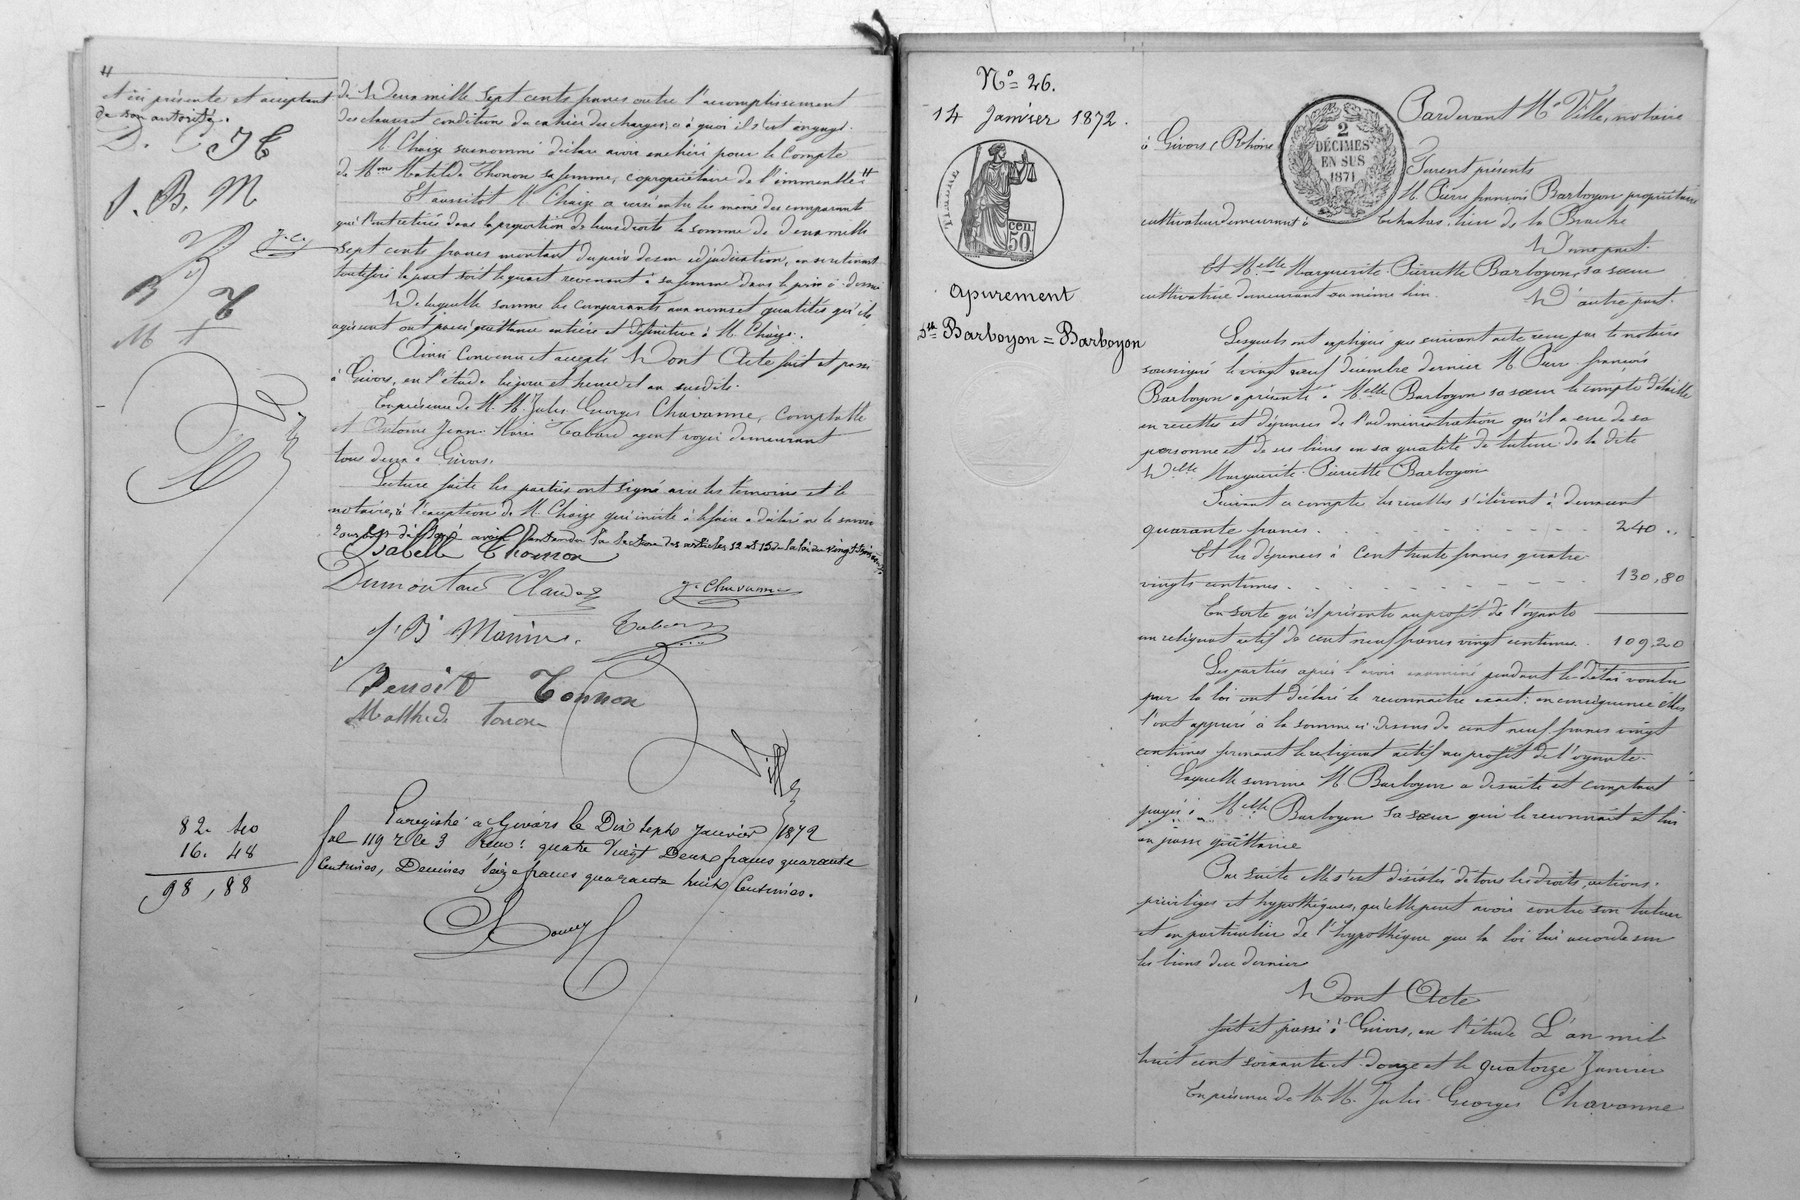 et ici présente et acceptant
de son autorité.
D. C J C
J. B. M
J. C.
B T
M T
de Deux mille sept cents francs outre l'accomplissement
des charges et conditions du cahier des charges, ce à quoi il s'est engagé.
M. Chaize susnommé déclare avoir enchéri pour le compte
de Mme Matilde Thonon sa femme, copropriétaire de l'immeuble
Et aussitôt M. Chaize a versé entre les mains des comparants
qui l'ont retirée dans la proportion de leurs droits la somme de deux mille
sept cents francs montant du prix de son adjudication, en se retenant
toutefois la part soit le quart revenant à sa femme dans le prix
De laquelle somme les comparants aux noms et qualités qu'ils
agissent ont passé quittance entière et définitive à M. Chaize.
Ainsi convenu et accepté. Dont Acte fait et passé
à Givors, en l'étude les jour et heure et an susdits.
En présence de M. M. Jules Georges Chavanne, comptable
et Antoine Jean Marie Tabard agent voyer demeurant
tous deux à Givors.
Lecture faite les parties ont signé avec les témoins et le
notaire, à l'exception de M. Chaize qui invité à le faire a déclaré ne le savoir
avoir entendu la lecture des articles 12 et 13 de la loi du vingt trois
Isabelle Thonnon
Dumontard Claude
J. Chavanne
J. B. Marius
Tabard
Benoit Tonnon
Mathilde Tonon
Ville
82. 40
16. 48
98, 88
Enregistré à Givors le Dix sept Janvier 1872
fol 119 r c 3 Reçu: quatre vingt Deux francs quarante
Centimes, Decimes Seize francs quarante huit Centimes.
N° 26.
14 Janvier 1872.
TIMBRE
50 cen.
apurement
Barboyon = Barboyon
2
DÉCIMES
EN SUS
1871
Pardevant Me Ville, notaire
à Givors (Rhône
Furent présents
M. Pierre françois Barboyon propriétaire
cultivateur demeurant à Echalas lieu de la Brache
D'une part.
Et Melle Marguerite Pierrette Barboyon, sa sœur
cultivatrice demeurant au même lieu. D'autre part.
Lesquels ont expliqué que suivant acte reçu par le notaire
soussigné le vingt neuf décembre dernier M. Pierre françois
Barboyon a présenté à Melle Barboyon sa sœur le compte détaillé
en recettes et dépenses de l'administration qu'il a eue de sa
personne et de ses biens en sa qualité de tuteur de la dite
Delle Marguerite Pierrette Barboyon
Suivant ce compte les recettes s'élèvent à deux cent
quarante francs . . . . . 240 ..
Et les dépenses à Cent trente francs quatre
vingts centimes . . . . . 130,80
En sorte qu'il présente au profit de l'oyante
un reliquat actif de cent neuf francs vingt centimes. 109,20
Les parties après l'avoir examiné pendant le délai voulu
par la loi ont déclaré le reconnaître exact; en conséquence elles
l'ont appuré à la somme ci dessus de cent neuf francs vingt
centimes formant le reliquat actif au profit de l'oyante.
Laquelle somme M Barboyon a desuite et comptant
payée à Melle Barboyon sa sœur qui le reconnait et lui
en passe quittance
Par suite elle s'est désistée de tous les droits, actions,
privilèges et hypothèques, qu'elle peut avoir contre son tuteur
et en particulier de l'hypothèque que la loi lui accorde sur
les biens de ce dernier
Dont Acte
fait et passé à Givors, en l'étude L'an mil
huit cent soixante et douze et le quatorze Janvier
En présence de M. M. Jules Georges Chavanne